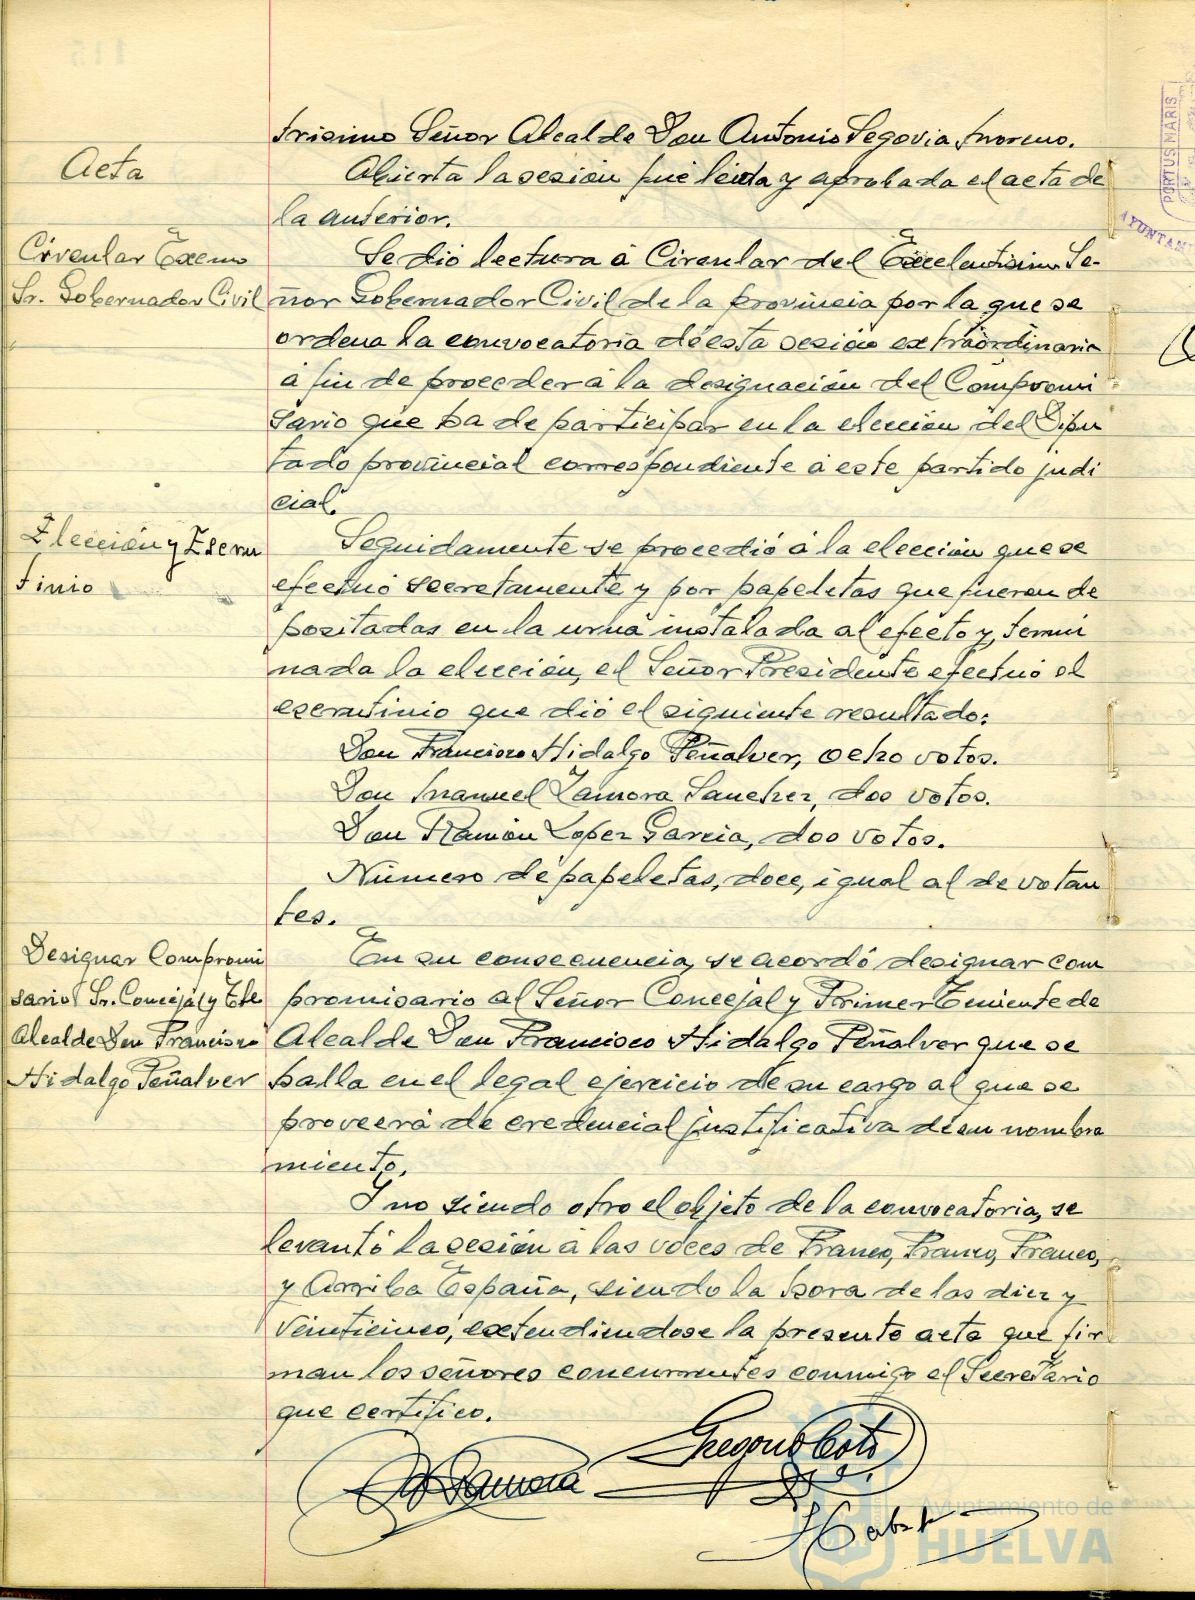 trisimo Señor Alcalde Don Antonio Segovia Moreno.
Acta
Abierta la sesión fué leida y aprobada el acta de
la anterior.
Circular Excmo
Sr. Gobernador Civil
Se dió lectura á Circular del Excelentisimo Se-
ñor Gobernador Civil de la provincia por la que se
ordena la convocatoria de esta sesión extraordinaria
á fin de proceder á la designación del Compromi
sario que ha de participar en la elección del Dipu
tado provincial correspondiente á este partido judi
cial.
Elección y Escru
tinio
Seguidamente se procedió á la elección que se
efectuó secretamente y por papeletas que fueron de
positadas en la urna instalada al efecto y, termi
nada la elección, el Señor Presidente efectuó el
escrutinio que dió el siguiente resultado:
Don Francisco Hidalgo Peñalver, ocho votos.
Don Manuel Zamora Sanchez, dos votos.
Don Ramón Lopez Garcia, dos votos.
Número de papeletas, doce, igual al de votan
tes.
Designar Compromi
sario Sr. Concejal y Tte
Alcalde Don Francisco
Hidalgo Peñalver
En su consecuencia, se acordó designar com
promisario al Señor Concejal y Primer Teniente de
Alcalde Don Francisco Hidalgo Peñalver que se
halla en el legal ejercicio de su cargo al que se
proveerá de credencial justificativa de su nombra
miento.
Y no siendo otro el objeto de la convocatoria, se
levantó la sesión á las voces de Franco, Franco, Franco,
y Arriba España, siendo la hora de las diez y
veinticinco, extendiendose la presente acta que fir
man los señores concurrentes conmigo el Secretario
que certifico.
Gregorio Coto
Zamora
Ayuntamiento de
HUELVA
PORTUS MARIS
AYUNTAM